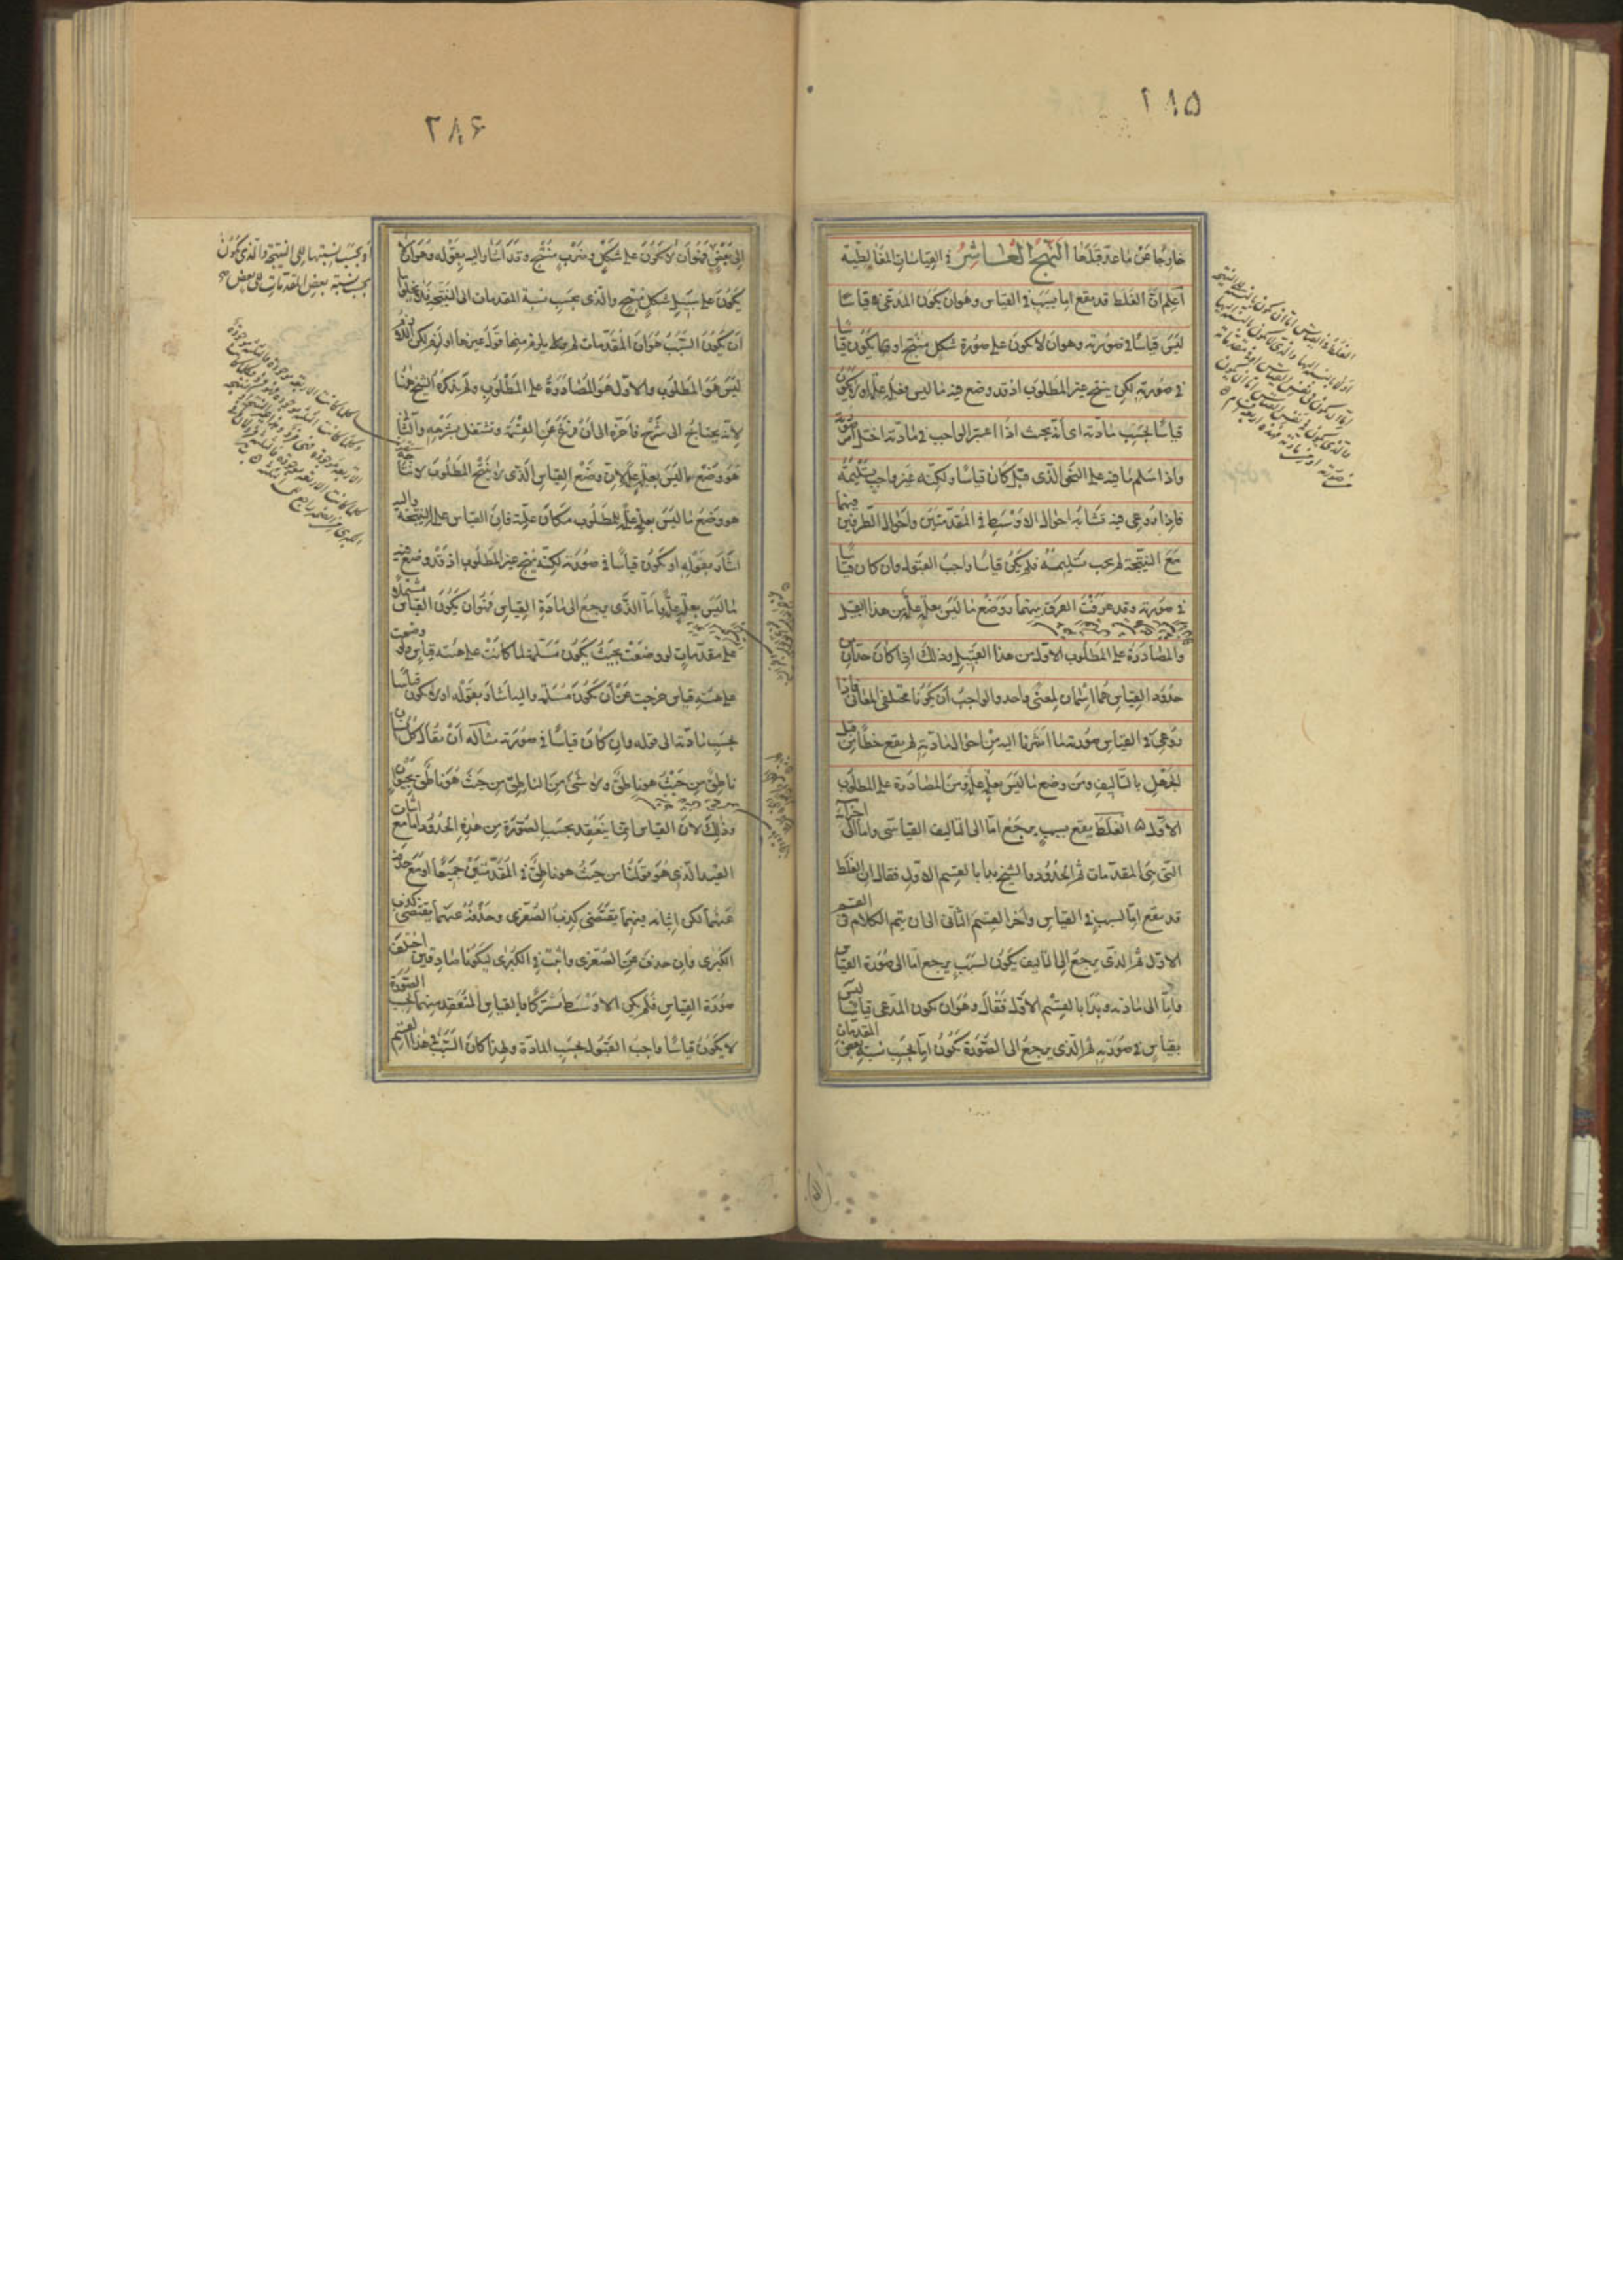 ٢٨٥
خارجًا عن ما عد قبلها النهج العاشر في القياسات المغالطية
اعلم ان الغلط قد يقع اما بسبب في القياس وهو ان يكون المدعى قياسًا
ليس قياسًا في صورته وهو ان لا يكون على صورة شكل منتج او يكون قياسًا
في صورته لكن ينتج غير المطلوب اذ قد وضع فيه ما ليس بعلة علة او لا يكون
قياسًا بحسب مادته اى انه بحيث اذا اعتبر الواجب في مادته اختل امر صورته
واذا سلم ما فيه على النحو الذى قيل كان قياسًا ولكنه غير واجب تسليمه
فاذا روعى فيه تشابه احوال الاوسط في المقدمتين واحوال الطرفين فيهما
مع النتيجة لم يجب تسليمه فلم يكن قياسا واجب القبول وان كان قياسًا
في صورته وقد عرفت الفرق بينهما ووضع ما ليس بعلة علة من هذا القبيل
والمصادرة على المطلوب الاول من هذا القبيل وذلك اذا كان حدّان من
حدود القياس هما اسمان لمعنى واحد والواجب ان يكونا مختلفى المعانى فاذا
روعى في القياس صورته وما اشرنا اليه من احوال مادته لم يقع خطأ من قبل
الجهل بالتاليف ومن وضع ما ليس بعلة علة ومن المصادرة على المطلوب
الاول ۵ الغلط يقع بسبب يرجع اما الى التاليف القياسى واما الى اجزائه
التى هى المقدمات ثم الحدود والشيخ بدأ بالقسم الاول فقال ان الغلط
قد يقع اما لسبب في القياس واخر القسم الثانى الى ان يتم الكلام في القسم
الاول ثم الذى يرجع الى التاليف يكون لسبب يرجع اما الى صورة القياس
واما الى مادته وبدأ بالقسم الاول فقال وهو ان يكون المدعى قياسًا ليس
بقياس في صورته ثم الذى يرجع الى الصورة يكون اما بحسب نسبة بعض المقدمات
٢٨۶
الى بعض فهو ان لا يكون على شكل وضرب منتج وقد اشار اليه بقوله وهو ان لا
يكون على سبيل شكل منتج والذى بحسب نسبة المقدمات الى النتيجة
ان يكون السبب هو ان المقدمات لم يلزم منها قول غيرها او لزم لكن اللازم
ليس هو المطلوب والاول هو المصادرة على المطلوب ولم يذكره الشيخ ههنا
لانه يحتاج الى شرح فاخره الى ان فرغ عن القسمة وتشتغل بشرحه والثانى
هو وضع ما ليس بعلة علة لان وضع القياس الذى لا ينتج المطلوب لانتاجه
هو وضع ما ليس بعلة علة للمطلوب مكان علته فان القياس علة النتيجة واليه
اشار بقوله او يكون قياسًا في صورته لكنه ينتج غير المطلوب اذ قد وضع فيه
ما ليس بعلة علة واما الذى يرجع الى مادة القياس فهو ان يكون القياس مشتملا
على مقدمات لو وضعت بحيث يكون مسلمة لما كانت على هيئة قياس ولو وضعت
على هيئة قياس خرجت عن ان تكون مسلمة واليه اشار بقوله او لا يكون قياسًا
بحسب مادته الى قوله وان كان قياسًا في صورته مثاله ان يقال كل انسان
ناطق من حيث هو ناطق ولا شئ من الناطق من حيث هو ناطق بحيوان
وذلك لان القياس انما ينعقد بحسب الصورة من هذه الحدود اما مع اثبات
القيد الذى هو قولنا من حيث هو ناطق في المقدمتين جميعًا او مع حذفه
عنهما لكن اثباته فيهما يقتضى كذب الصغرى وحذفه عنهما يقتضى كذب
الكبرى وان حذف عن الصغرى واثبت في الكبرى ليكونا صادقين اختلف
صورة القياس فلم يكن الاوسط مشتركًا فالقياس المنعقد منهما بحسب الصورة
لا يكون قياسًا واجب القبول بحسب المادة ولهذا كان السبب في هذا القسم
او بحسب نسبتها الى النتيجة والذى يكون
بحسب نسبة بعض المقدمات الى بعض صح